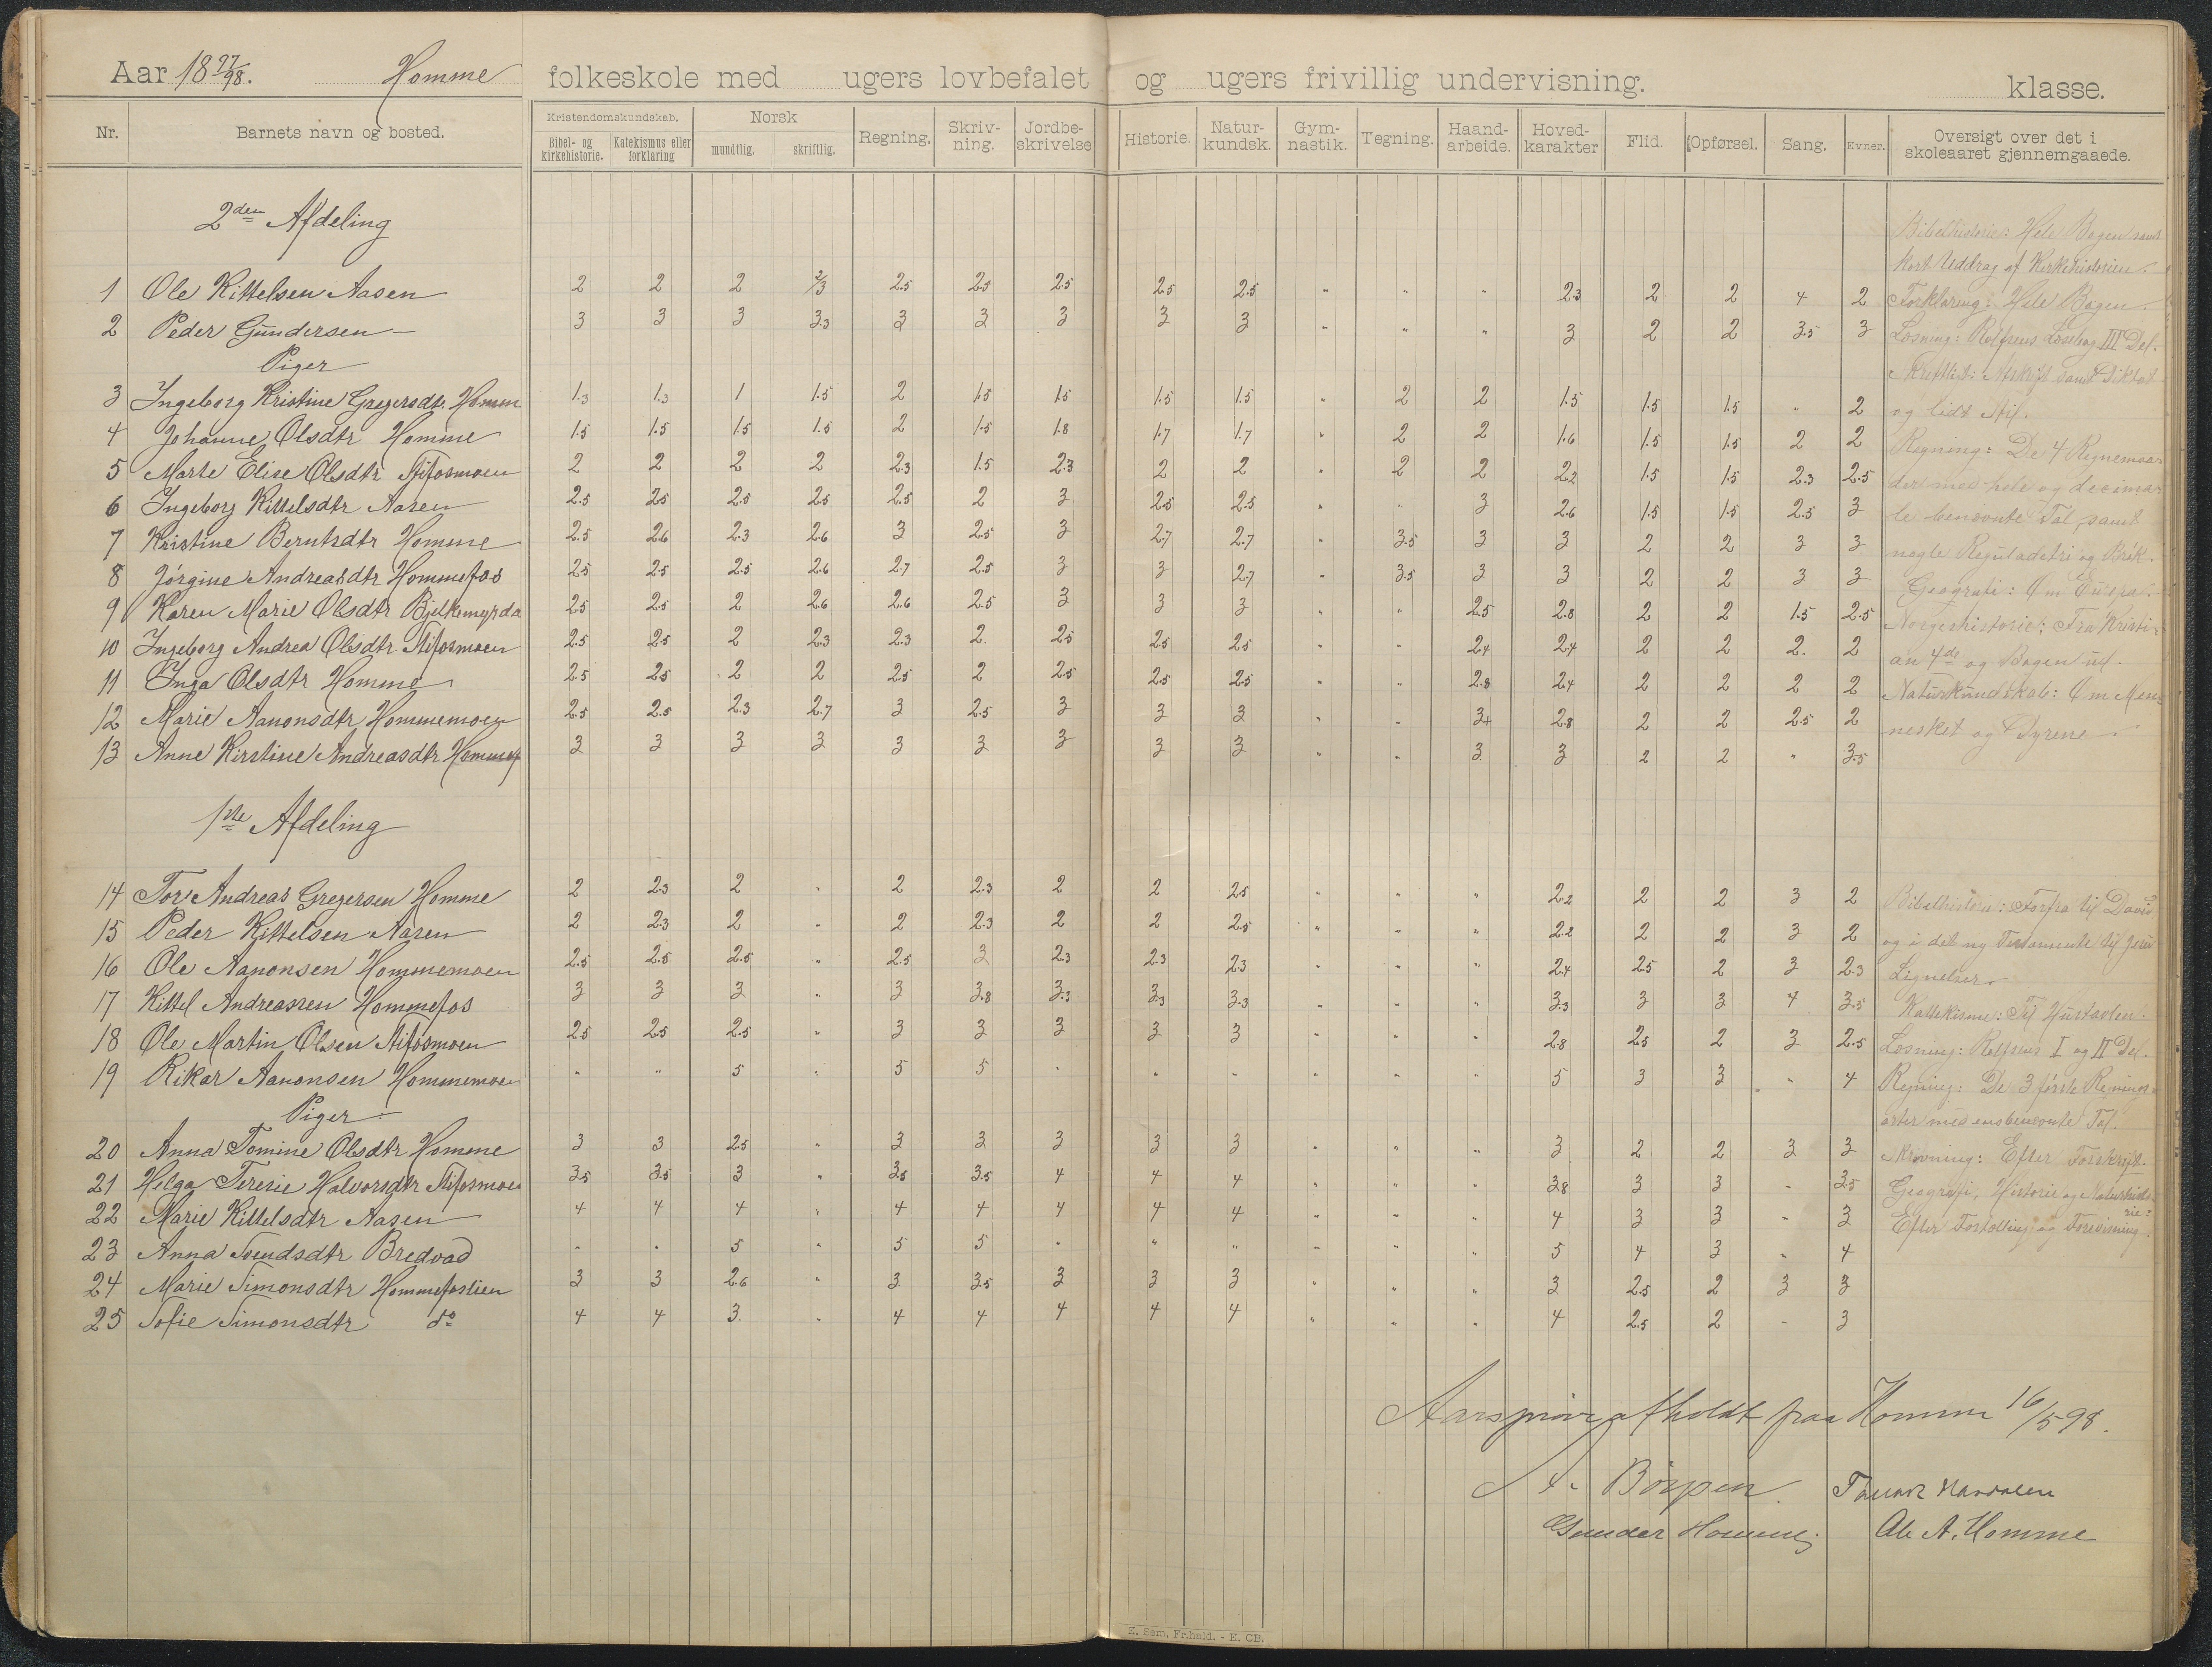 Aar 18 97/98. Homme folkeskole med ugers lovbefalet og ugers frivillig undervisning. klasse.
Nr. Barnets navn og bosted. Kristendomskundskab. Bibel- og kirkehistorie. Katekismus eller forklaring Norsk mundtlig. skriftlig. Regning. Skriv-ning. Jordbe-skrivelse Historie. Natur-kundsk. Gym-nastik. Tegning. Haand-arbeide. Hoved-karakter Flid. Opførsel. Sang. Evner. Oversigt over det i skoleaaret gjennemgaaede.
2den Afdeling
1 Ole Kittelsen Aasen 2 2 2 2/3 2.5 2.5 2.5 2.5 2.5 " " " 2.3 2 2 4 2
2 Peder Gundersen — 3 3 3 3.3 3 3 3 3 3 " " " 3 2 2 3.5 3
Piger
3 Ingeborg Kristine Gregersdt. Homm 1.3 1.3 1 1.5 2 1.5 1.5 1.5 1.5 " 2 2 1.5 1.5 1.5 " 2
4 Johanne Olsdtr Homme 1.5 1.5 1.5 1.5 2 1.5 1.8 1.7 1.7 " 2 2 1.6 1.5 1.5 2 2
5 Marte Elise Olsdtr Stifosmoen 2 2 2 2 2.3 1.5 2.3 2 2 " 2 2 2.2 1.5 1.5 2.3 2.5
6 Ingeborg Kittelsdtr Aasen 2.5 2.5 2.5 2.5 2.5 2 3 2.5 2.5 " " 3 2.6 1.5 1.5 2.5 3
7 Kristine Berntsdtr Homme 2.5 2.6 2.3 2.6 3 2.5 3 2.7 2.7 " 3.5 3 3 2 2 3 3
8 Jørgine Andreasdtr Hommefos 2.5 2.5 2.5 2.6 2.7 2.5 3 3 2.7 " 3.5 3 3 2 2 3 3
9 Karen Marie Olsdtr Bjelkemyrda 2.5 2.5 2 2.6 2.6 2.5 3 3 3 " " 2.5 2.8 2 2 1.5 2.5
10 Ingeborg Andrea Olsdtr Stifosmoen 2.5 2.5 2 2.3 2.3 2. 2.5 2.5 2.5 " " 2.4 2.4 2 2 2. 2
11 Inga Olsdtr Homme 2.5 2.5 2 2 2.5 2 2.5 2.5 2.5 " " 2.8 2.4 2 2 2 2
12 Marie Aanonsdtr Hommemoen 2.5 2.5 2.3 2.7 3 2.5 3 3 3 " " 3+ 2.8 2 2 2.5 2
13 Anne Kirstine Andreasdtr Hommef 3 3 3 3 3 3 3 3 3 " " 3 3 2 2 " 3.5
Bibelhistorie: Hele Bogen samt
kort Uddrag af Kirkehistorien.
Forklaring: Hele Bogen.
Læsning: Rolfsens Læsebog III Del.
Skriftlist: Afskrift samt Diktat
og lidt Stil.
Regning: De 4 Regnemaa-
der med hele og decima-
le benævnte Tal samt
nogle Reguladetri og Brøk.
Geografi: Om Europa.
Norgeshistorie: Fra Kristi-
an 4de og Bogen ud.
Naturkundskab: Om Men-
nesket og Dyrene.
1ste Afdeling
14 Tor Andreas Gregersen Homme 2 2.3 2 " 2 2.3 2 2 2.5 " " " 2.2 2 2 3 2
15 Peder Kittelsen Aasen 2 2.3 2 " 2 2.3 2 2 2.5 " " " 2.2 2 2 3 2
16 Ole Aanonsen Hommemoen 2.5 2.5 2.5 " 2.5 3 2.3 2.3 2.3 " " " 2.4 2.5 2 3 2.3
17 Kittel Andreassen Hommefos 3 3 3 " 3 3.8 3.3 3.3 3.3 " " " 3.3 3 3 4 3.5
18 Ole Martin Olsen Stifosmoen 2.5 2.5 2.5 " 3 3 3 3 3 " " " 2.8 2.5 2 3 2.5
19 Rikar Aanonsen Hommemoen " " 5 " 5 5 " " " " " " 5 3 3 " 4
Piger
20 Anna Tomine Olsdtr Homme 3 3 2.5 " 3 3 3 3 3 " " " 3 2 2 3 3
21 Helga Teresie Halvorsdtr Stifosmoen 3.5 3.5 3 " 3.5 3.5 4 4 4 " " " 3.8 3 3 " 3.5
22 Marie Kittelsdtr Aasen 4 4 4 " 4 4 4 4 4 " " " 4 3 3 " 3
23 Anna Svendsdtr Bredvad " " 5 " 5 5 " " " " " " 5 4 3 " 4
24 Marie Simonsdtr Hommefoslien 3 3 2.6 " 3 3.5 3 3 3 " " " 3 2.5 2 3 3
25 Sofie Simonsdtr do 4 4 3. " 4 4 4 4 4 " " " 4 2.5 2 - 3
Bibelhistorie: Forfra til David
og i det ny Testamente til Jesu
Lignelser.
Kattekisme: Til Hustavlen.
Læsning: Rolfsens I og II Del.
Regning: De 3 første Regnings-
arter med ensbenævnte Tal.
Skrivning: Efter Forskrift.
Geografi, Historie og Naturhisto-
rie:
Efter Fortælling og Forevisning.
Aarsprøve afholdt paa Homme 16/5 98.
A. Børpen. Tarald
Gunder Homme. Ole A. Homme
E. Sem. Fr.hald. - E. CB.